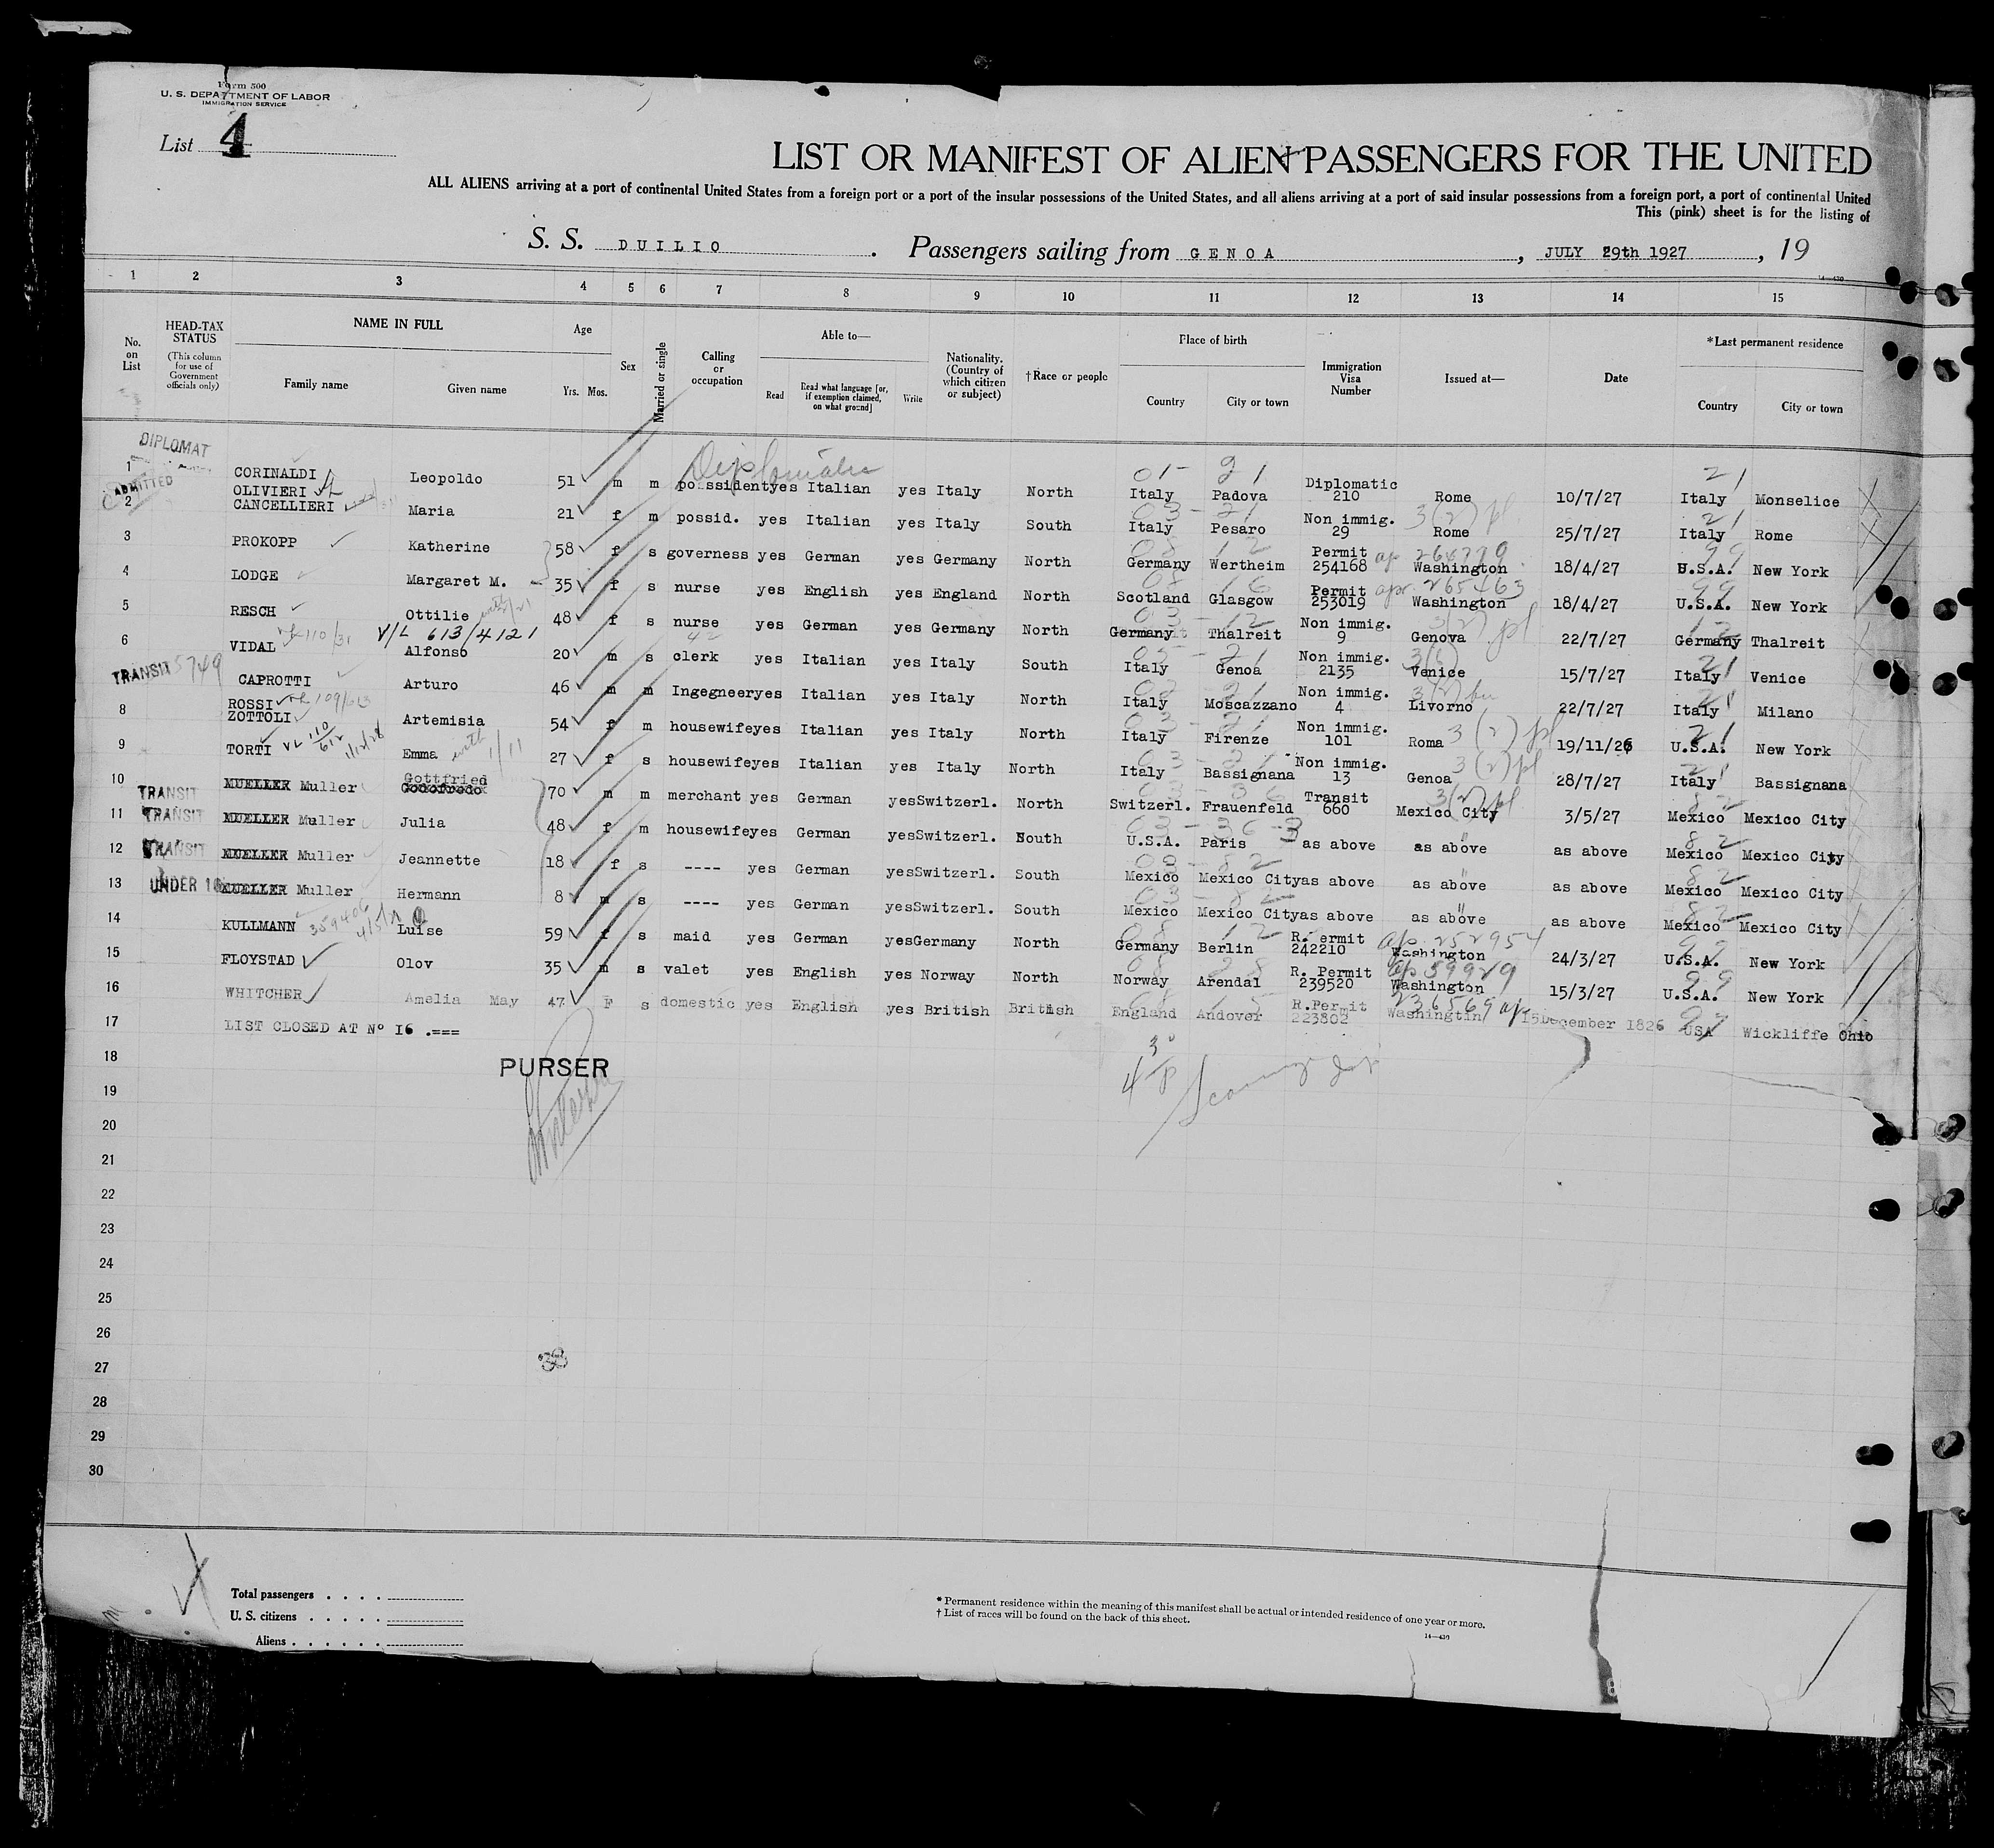 Form 500
U. S. DEPARTMENT OF LABOR
IMMIGRATION SERVICE
List 4
LIST OR MANIFEST OF ALIEN PASSENGERS FOR THE UNITED
ALL ALIENS arriving at a port of continental United States from a foreign port or a port of the insular possessions of the United States, and all aliens arriving at a port of said insular possessions from a foreign port, a port of continental United
This (pink) sheet is for the listing of
S. S. DUILIO. Passengers sailing from GENOA, JULY 29th 1927, 19
14—430
1 2 3 4 5 6 7 8 9 10 11 12 13 14 15
No. on List HEAD-TAX STATUS (This column for use of Government officials only) NAME IN FULL Family name Given name Age Yrs. Mos. Sex Married or single Calling or occupation Able to— Read Read what language [or, if exemption claimed, on what ground] Write Nationality. (Country of which citizen or subject) †Race or people Place of birth Country City or town Immigration Visa Number Issued at— Date *Last permanent residence Country City or town
DIPLOMAT Diplomatic 01- 21 21
1 CORINALDI Leopoldo 51 m m possident yes Italian yes Italy North Italy Padova Diplomatic 210 Rome 10/7/27 Italy Monselice
ADMITTED
2 OLIVIERI CANCELLIERI Maria 21 f m possid. yes Italian yes Italy South Italy Pesaro Non immig. 29 3(2) pl Rome 25/7/27 Italy Rome
3 PROKOPP Katherine 58 f s governess yes German yes Germany North Germany Wertheim Permit 254168 Washington 18/4/27 U.S.A. New York
4 LODGE Margaret M. 35 f s nurse yes English yes England North Scotland Glasgow Permit 253019 apr. 265463 Washington 18/4/27 U.S.A. New York
5 RESCH Ottilie 48 f s nurse yes German yes Germany North Germany Thalreit Non immig. 9 Genova 22/7/27 Germany Thalreit
V/L 613/4121
6 VIDAL Alfonso 20 m s clerk yes Italian yes Italy South Italy Genoa Non immig. 2135 Venice 15/7/27 Italy Venice
TRANSIT 5749 CAPROTTI Arturo 46 m m Ingegneer yes Italian yes Italy North Italy Moscazzano Non immig. 4 Livorno 22/7/27 Italy Milano
8 ROSSI ZOTTOLI Artemisia 54 f m housewife yes Italian yes Italy North Italy Firenze Non immig. 101 Roma 3(2) pl 19/11/26 U.S.A. New York
9 TORTI VL 110/612 Emma 27 f s housewife yes Italian yes Italy North Italy Bassignana Non immig. 13 Genoa 3(2) pl 28/7/27 Italy Bassignana
10 TRANSIT MUELLER Muller Gottfried Godofredo 70 m m merchant yes German yes Switzerl. North Switzerl. Frauenfeld Transit 660 3(2) pl Mexico City 3/5/27 Mexico Mexico City
11 TRANSIT MUELLER Muller Julia 48 f m housewife yes German yes Switzerl. South U.S.A. Paris as above as above as above Mexico Mexico City
12 TRANSIT MUELLER Muller Jeannette 18 f s ---- yes German yes Switzerl. South Mexico Mexico City as above as above as above Mexico Mexico City
13 UNDER 16 MUELLER Muller Hermann 8 m s ---- yes German yes Switzerl. South Mexico Mexico City as above as above as above Mexico Mexico City
14 KULLMANN Luise 59 f s maid yes German yes Germany North Germany Berlin R. Permit 242210 ap. 252954 Washington 24/3/27 U.S.A. New York
15 FLOYSTAD Olov 35 m s valet yes English yes Norway North Norway Arendal R. Permit 239520 Washington 15/3/27 U.S.A. New York
16 WHITCHER Amelia May 47 F s domestic yes English yes British British England Andover R.Permit 223802 236569 ap Washingtin 15December 1826 USA Wickliffe Ohio
17 LIST CLOSED AT Nº I6 .===
18 PURSER
19
20
21
22
23
24
25
26
27
28
29
30
Total passengers . . . .
U. S. citizens . . . . .
Aliens . . . . . .
* Permanent residence within the meaning of this manifest shall be actual or intended residence of one year or more.
† List of races will be found on the back of this sheet.
14—430